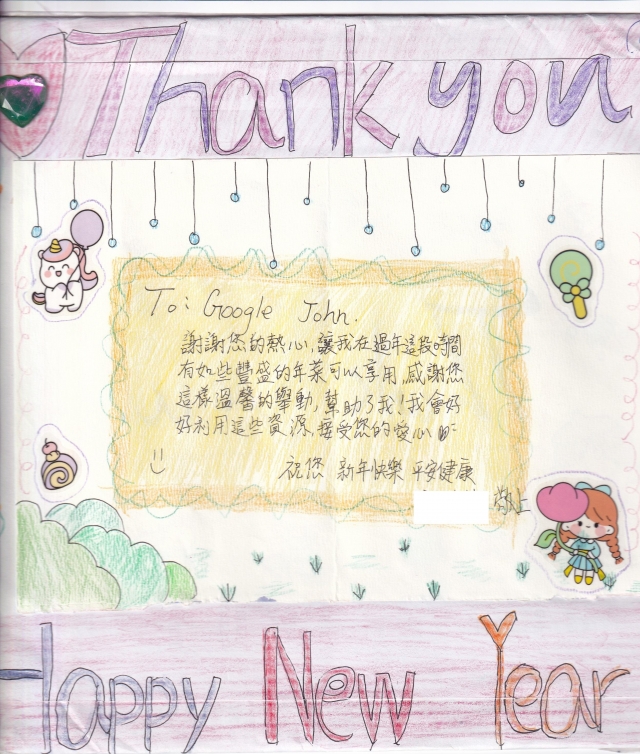 Thank you
To: Google John.
謝謝您的熱心,讓我在過年這段時間
有如些豐盛的年菜可以享用,感謝您
這樣溫馨的舉動,幫助了我!我會好
好利用這些資源,接受您的愛心
祝您 新年快樂 平安健康
敬上
Happy New Year